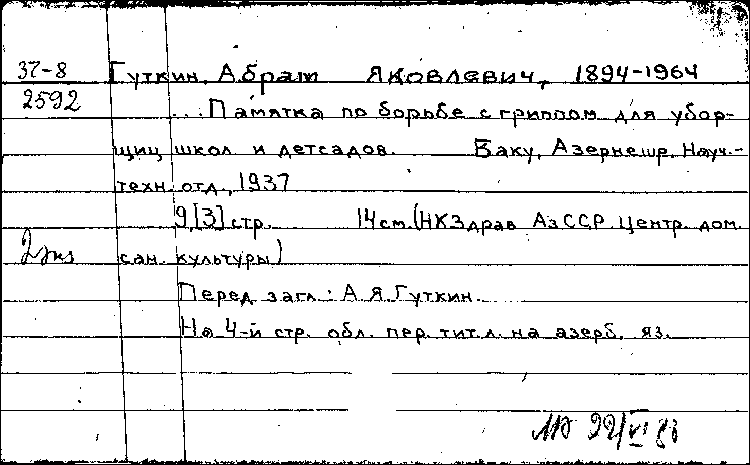 37-8 Гуткин, Абрам Яковлевич, 1894-1964
2592 ...Памятка по борьбе с гриппом для убор-
щиц школ и детсадов. Баку, Азернешр. Науч.-
техн. отд., 1937
9,[3] стр. 14 см. (НКЗдрав АзССР. Центр. дом.
2 экз сан. культуры)
Перед загл.: А.Я.Гуткин.
На 4-й стр. обл. пер. тит.л. на азерб. яз.
22/VI